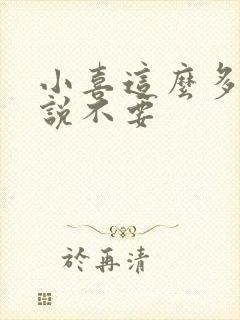 小喜這麼多
說不要
於再清